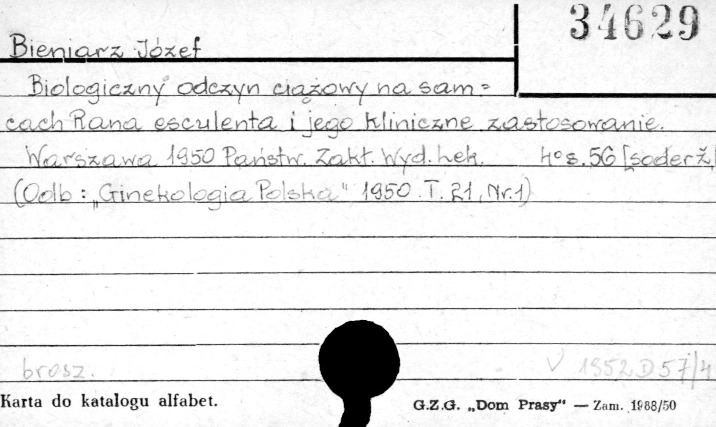 34629
Bieniarz Józef
Biologiczny odczyn ciążowy na sam=
cach Rana esculenta i jego kliniczne zastosowanie.
Warszawa 1950 Państw. Zakt. Wyd. Lek. 4° s. 56 [soderž]
(Odb: „Ginekologia Polska" 1950. T. 21, Nr. 1)
brosz. V 1952 D 57/4
Karta do katalogu alfabet. G.Z.G. „Dom Prasy" — Zam. 1988/50